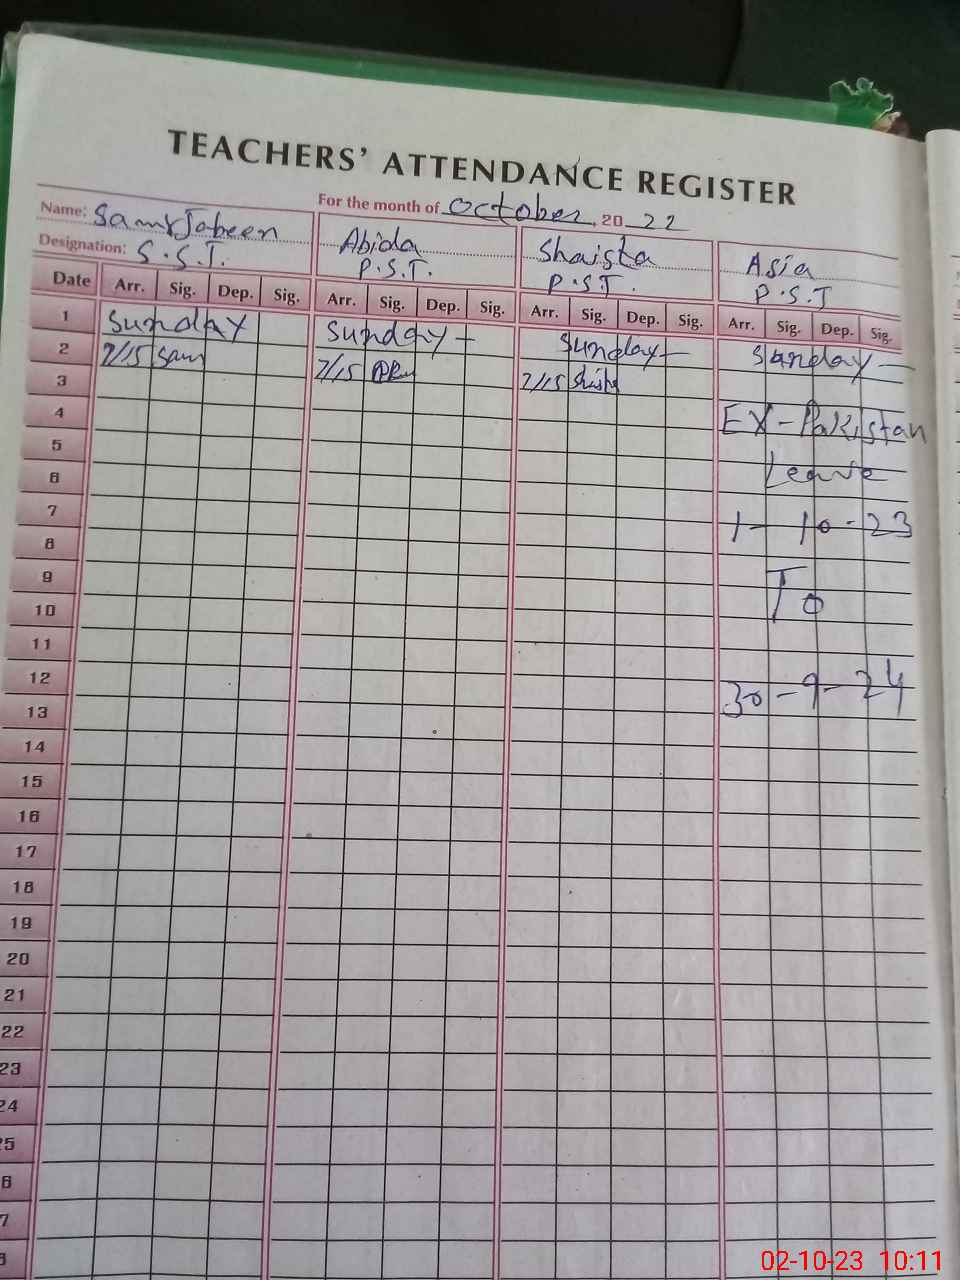 TEACHERS' ATTENDANCE REGISTER
For the month of October 2022
Name: Jabeen Abida Shaista Asia
Designation: S.S.T. P.S.T. P.S.T. P.S.T
Date Arr. Sig. Dep. Sig. Arr. Sig. Dep. Sig. Arr. Sig. Dep. Sig. Arr. Sig. Dep. Sig.
1 Sunday Sunday - Sunday - Sunday -
2 7/15 Sam 7/15 7/15
3
4 EX-Pakistan
5
6 Leave
7 1-10-23
8
9 To
10
11
12 30-9-24
13
14
15
16
17
18
19
20
21
22
23
24
25
6
7
8
02-10-23 10:11